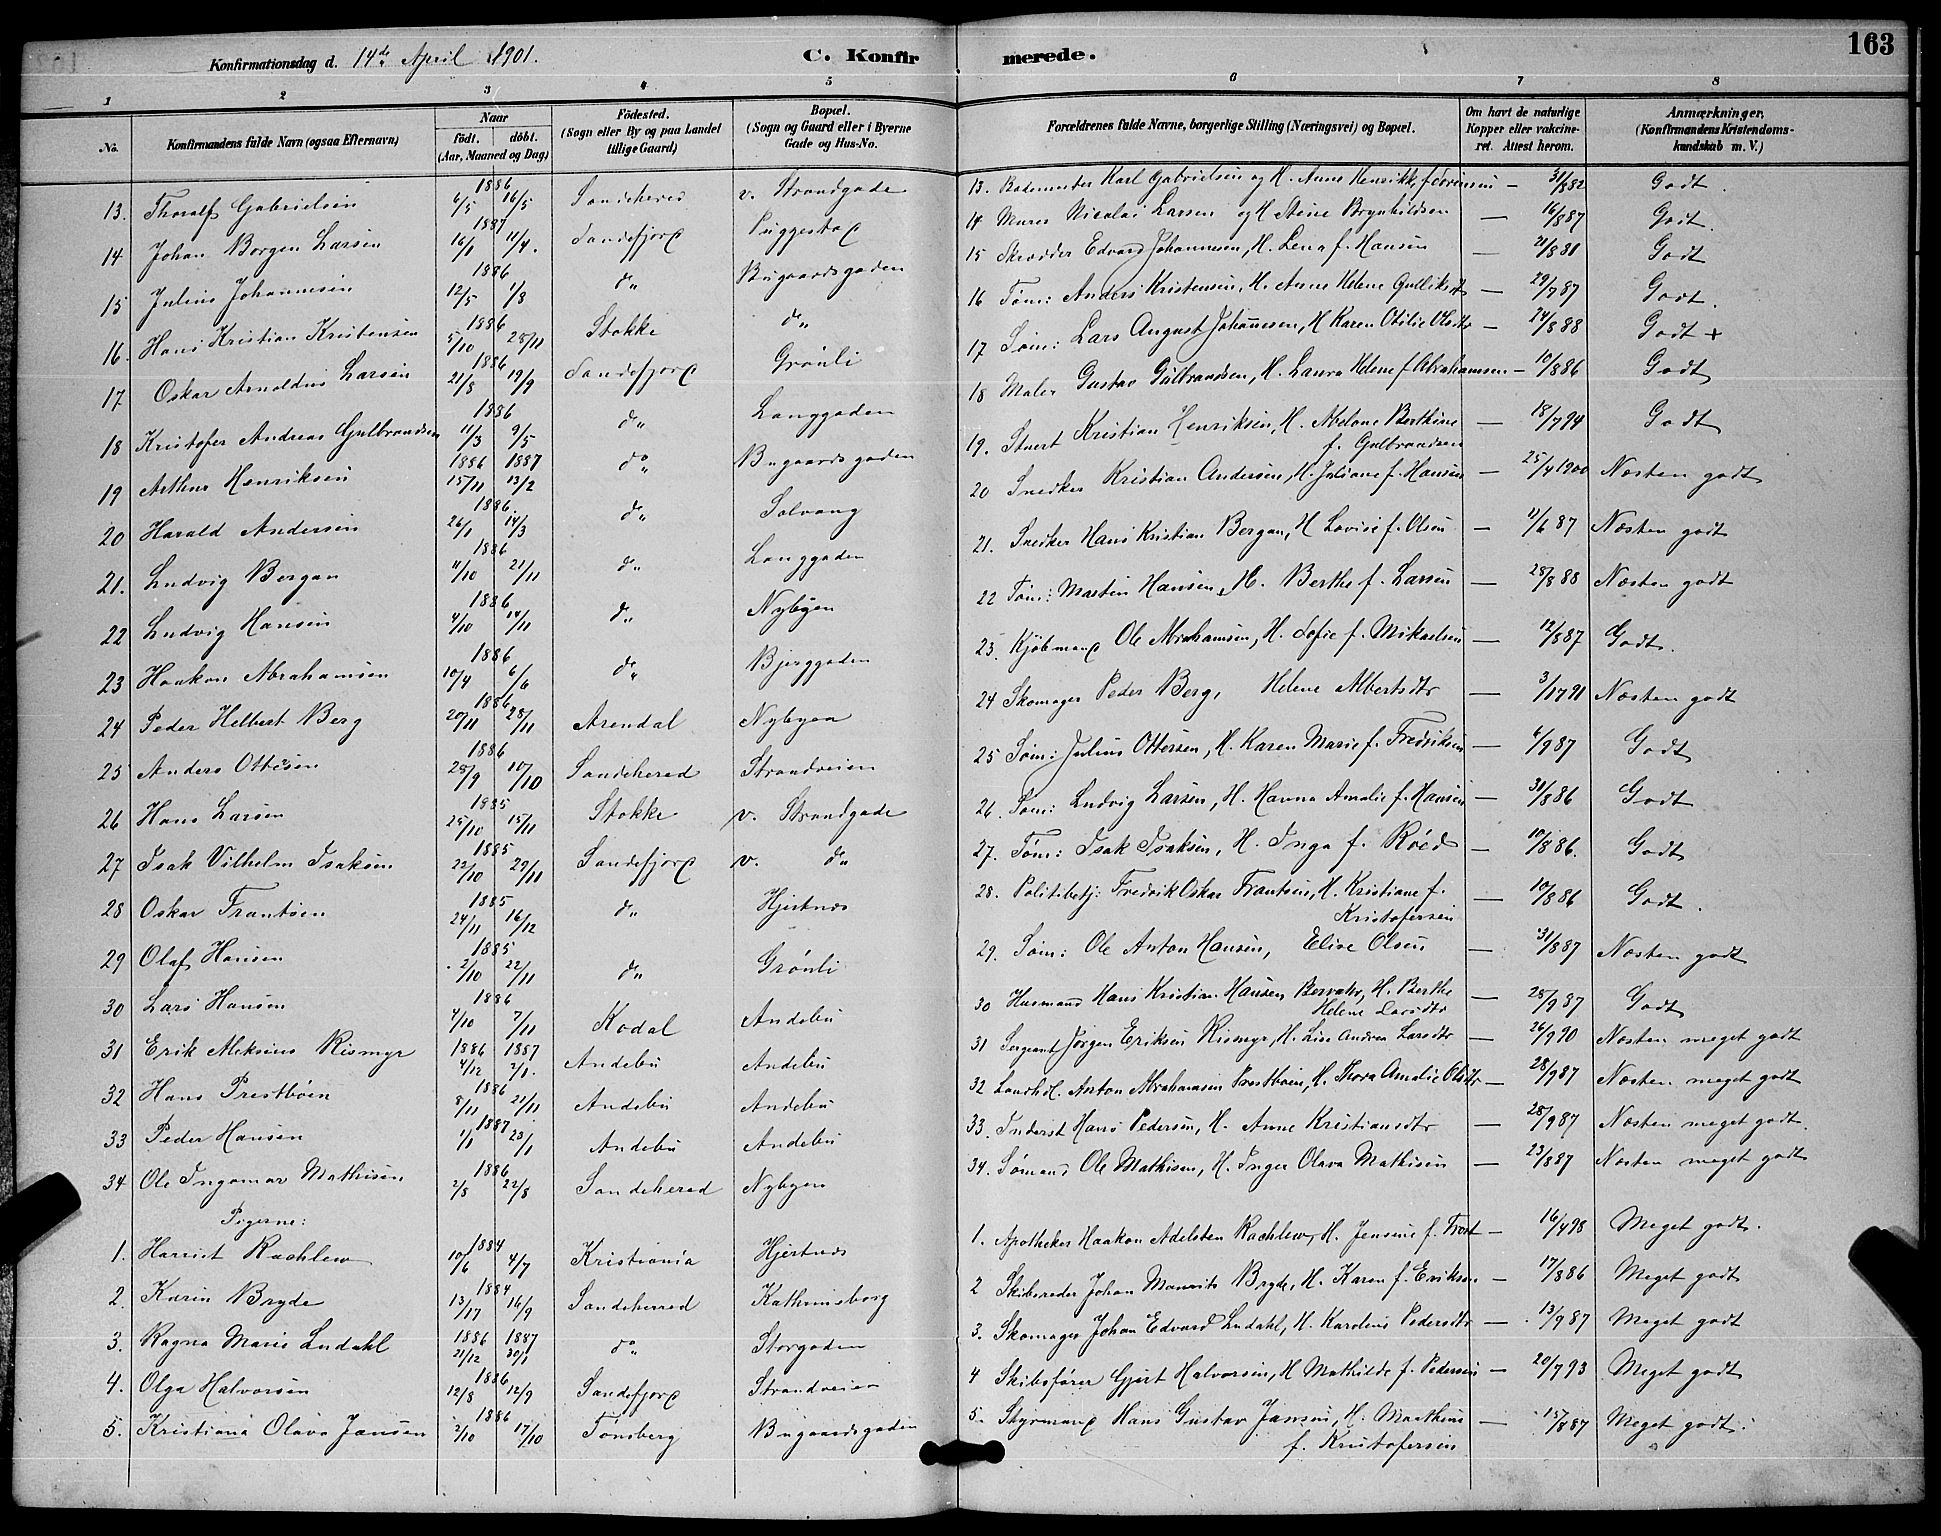 Konfirmationsdag d. 14de April 1901.
C. Konfirmerede.
163
1 2 3 4 5 6 7 8
No.
Konfirmandens fulde Navn (ogsaa Efternavn)
Naar
födt. döbt.
(Aar, Maaned og Dag)
Födested.
(Sogn eller By og paa Landet
tillige Gaard)
Bopæl.
(Sogn og Gaard eller i Byerne
Gade og Hus-No.
Forældrenes fulde Navne, borgerlige Stilling (Næringsvei) og Bopæl.
Om havt de naturlige
Kopper eller vakcine-
ret. Attest herom.
Anmærkninger,
(Konfirmandens Kristendoms-
kundskab m. V.)
13. Thoralf Gabrielsen 1886 6/5 16/5 Sandeherred v. Strandgade
14 Johan Borgen Larsen 1887 16/1 11/4. Sandefjord Puggestad
15 Julius Johannesen 1886 12/5 1/8 do Bugaardsgaden
16. Hans Kristian Kristensen 1886 5/10 28/11 Stokke do
17 Oskar Arnoldus Larsen 1886 21/8 19/9 Sandefjord Grönli
18 Kristofer Andreas Gulbrandsen 1886 11/3 9/5 do Langgaden
19 Arthur Henriksen 1886 15/11 1887 13/2 do Bugaardsgaden
20 Harald Andersen 1886. 26/1 14/3 do Solvang
21. Ludvig Bergan 1886 11/10 21/11 do Langgaden
22 Ludvig Hansen 1886 4/10 14/11 do Nybyen
23 Haakon Abrahamsen 1886 10/4 6/6 do Bjerggaden
24 Peder Helbert Berg 1886 20/11 28/11 Arendal Nybyen
25 Anders Ottesen 1886 28/9 10/10 Sandeherad Strandveien
26 Hans Larsen 1885 25/10 15/11 Stokke v. Strandgade
27 Isak Vilhelm Isaksen 1885 22/10 29/11 Sandefjord v. do
28 Oskar Frantsen 1885 24/11 16/12 do Hjertnæs
29 Olaf Hansen 1885 2/10 22/11 do Grönli
30 Lars Hansen 1886 4/10 7/11 Kodal Andebu
31 Erik Aleksius Rismyr 1886 4/12 1887 2/1. Andebu Andebu
32 Hans Prestböen 1886 8/11 21/11 Andebu Andebu
33 Peder Hansen 1887 1/1 23/1 Andebu Andebu
34 Ole Ingomar Mathisen 1886 2/8 22/8 Sandeherad Nybyen
Pigerne:
1. Harriet Rachlew 1884 10/6 4/7 Kristiania Hjertnæs
2. Karin Bryde 1884 13/17 16/9 Sandeherred Kathrinsborg
3. Ragna Marie Lndahl 1886 21/12 1887 30/1 do Storgaden
4. Olga Halvorsen 1886 12/8 12/9 Sandefjord Strandveien
5. Kristiana Olava Jansen 1886 2/10 17/10 Tönsberg Bugaardsgaden
13. Bademester Karl Gabrielsen og H. Anne Henrikke f. Sörensen — 31/8 82 Godt.
14 Murer Nicolai Larsen og H Stine Brynhildsen — 16/8 87 Godt.
15 Skrædder Edvard Johannesen, H. Lena f. Hansen — 21/8 81 Godt
16 Töm: Anders Kristensen, H. Anne Helene Gulliksdtr — 29/7 87 Godt.
17 Söm: Lars August Johannesen, H Karen Otilie Olsdtr — 24/8 88 Godt +
18 Maler Gustav Gulbrandsen, H. Laura Helene f. Abrahamsen — 10/8 86 Godt
19. Stuert Kristian Henriksen, H. Abelone Berthine
f. Gulbrandsen — 18/7 94 Godt
20 Snedker Kristian Andersen, H. Juliane f. Hansen — 25/4 1900 Næsten godt
21. Snedker Hans Kristian Bergan, H Lovise f. Olsen — 11/6 87 Næsten godt
22 Töm: Martin Hansen, H. Berthe f. Larsen — 28/8 88 Næsten godt
23. Kjöbmand Ole Abrahamsen, H. Sofie f. Mikaelsen — 12/8 87 Godt.
24 Skomager Peder Berg, Helene Albertsdtr — 3/17 91 Næsten godt
25 Söm: Julius Ottersen, H. Karen Marie f. Fredriksen — 6/9 87 Godt
26. Söm: Ludvig Larsen, H. Hanna Amalie f. Hansen — 31/8 86 Godt
27. Töm: Isak Isaksen, H. Inga f. Röed — 10/8 86. Godt
28. Politibetj: Fredrik Oskar Frantsen, H. Kristiane f.
Kristofersen — 10/8 86 Godt.
29. Söm: Ole Anton Hansen, Elise Olsen — 31/8 87 Næsten godt
30 Husmand Hans Kristian Hansen, H. Berthe
Helene Larsdtr — 28/9 87 Godt
31 Sergeant Jörgen Eriksen Rismyr, H. Lise Andrea Larsdtr — 26/9 90 Næsten meget godt
32 Landhd. Anton Abrahamsen Prestböen, H. Thora Amalie Olsdtr — 28/9 87 Næsten meget godt
33. Inderst Hans Pedersen, H. Anne Kristiansdtr — 28/9 87 Næsten meget godt.
34. Sömand Ole Mathisen, H. Inger Olava Mathisen — 23/8 87 Næsten meget godt
1. Apotheker Haakon Adelsten Rachlew, H. Jensine f. Trost — 16/4 98 Meget godt.
2 Skibsreder Johan Maurits Bryde, H. Karen f. Eriksen — 17/8 86 Meget godt
3. Skomager Johan Edvard Lndahl, H. Karoline Pedersdtr — 13/9 87 Meget godt
4 Skibsförer Gjert Halvorsen, H Mathilde f. Pedersen — 20/7 93 Meget godt
5. Styrmand Hans Gustav Jansen, H. Marthine
f. Kristofersen — 15/8 87 Meget godt.